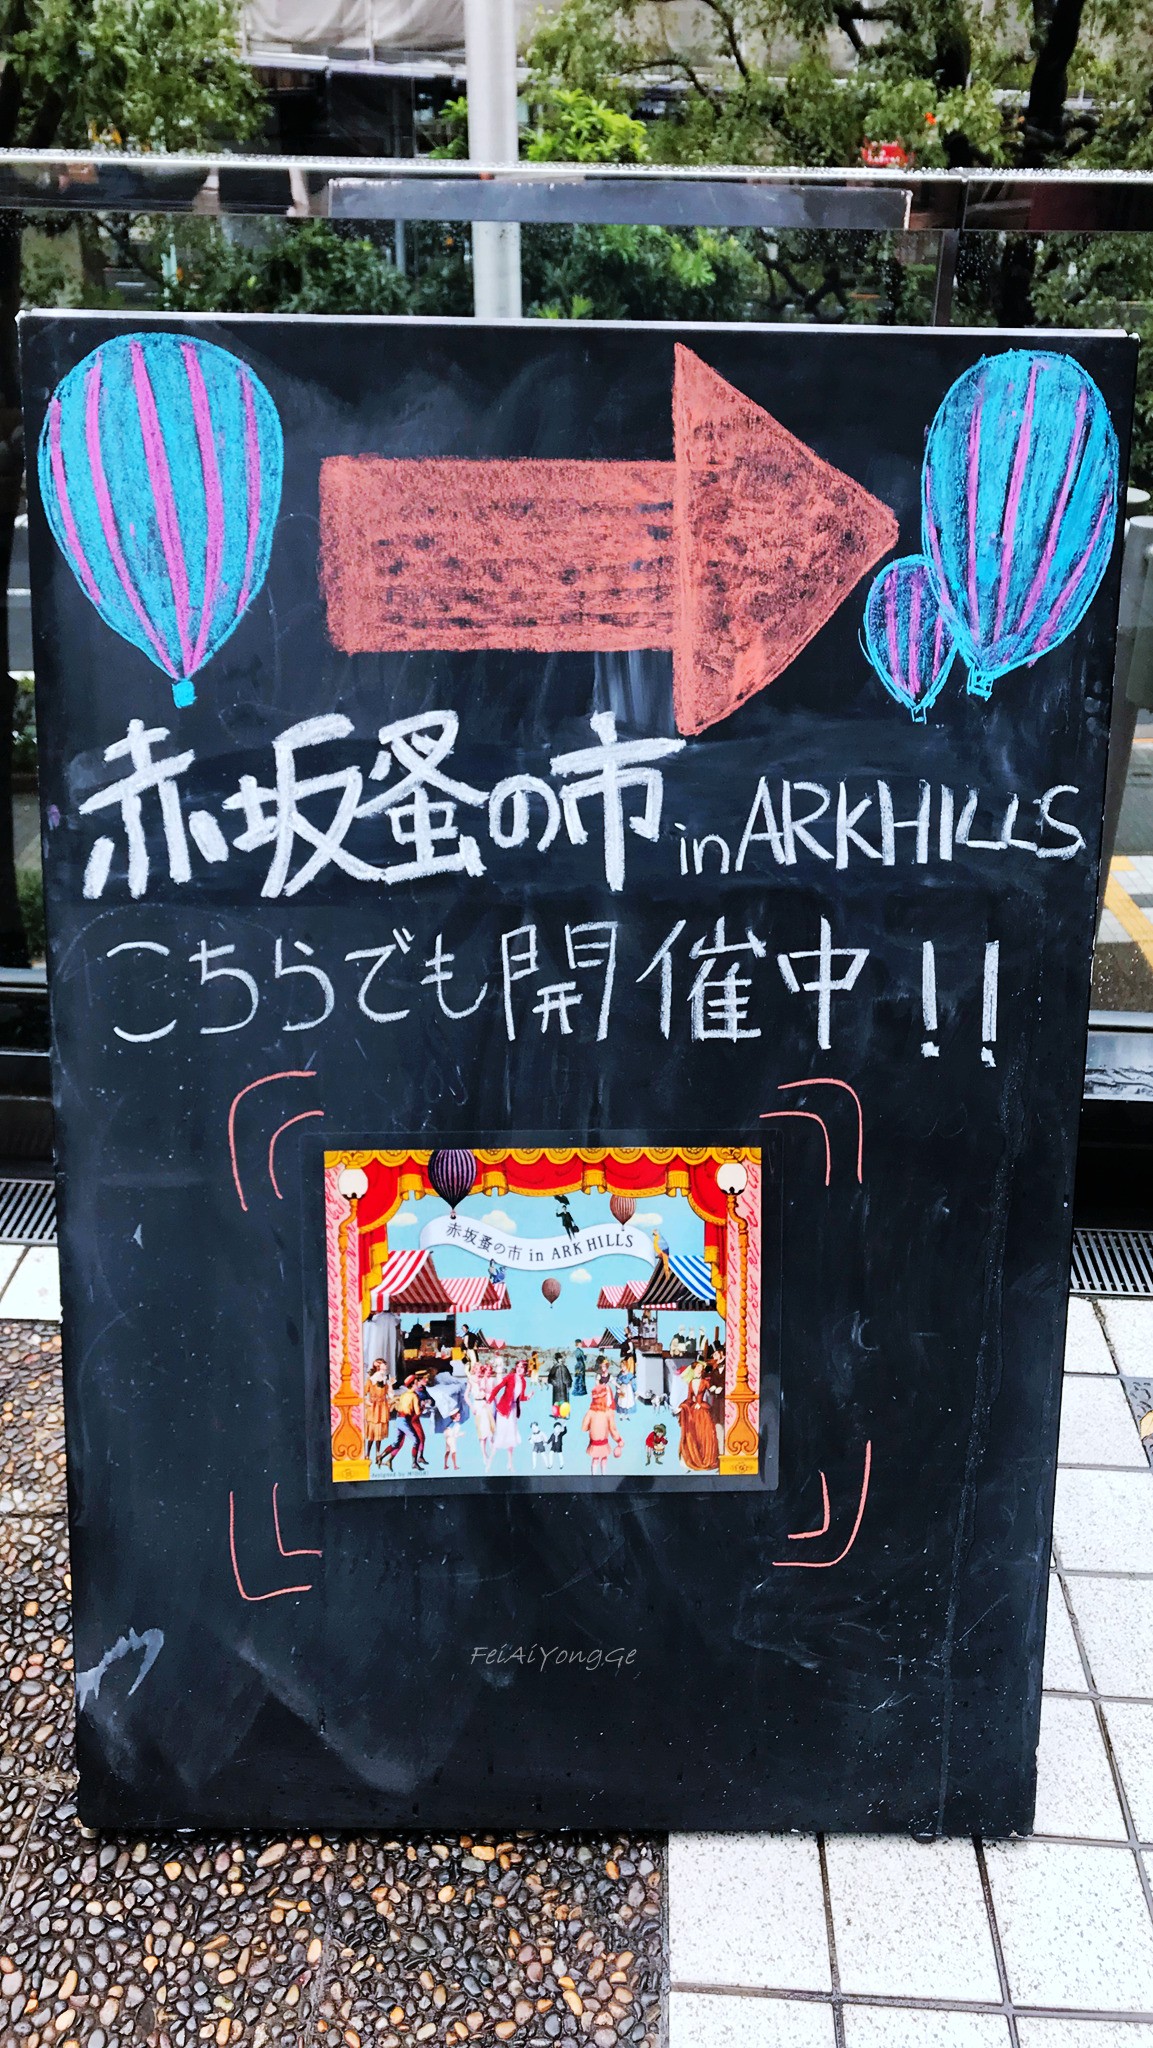 赤坂蚤の市 in ARKHILLS
こちらでも開催中!!
赤坂蚤の市 in ARK HILLS
designed by MIDORI
FeiAiYongGe